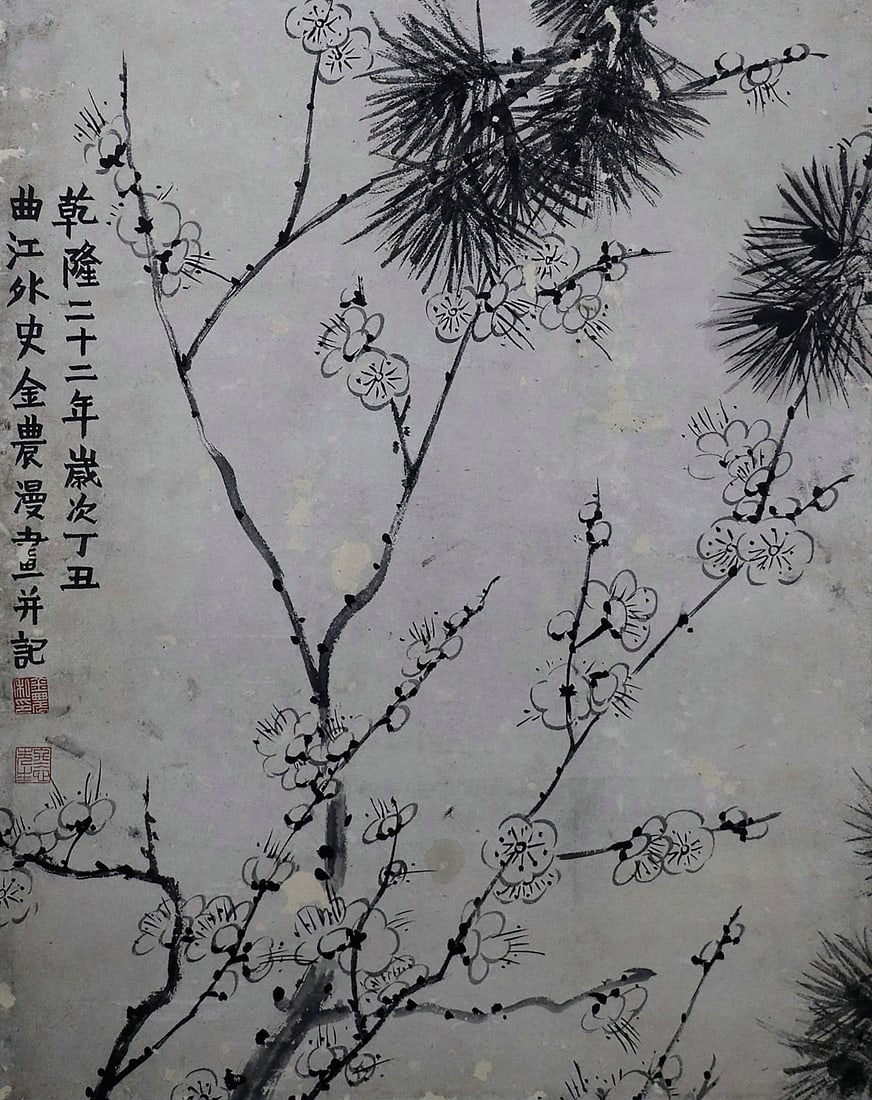 乾隆二十二年歲次丁丑
曲江外史金農漫畫并記